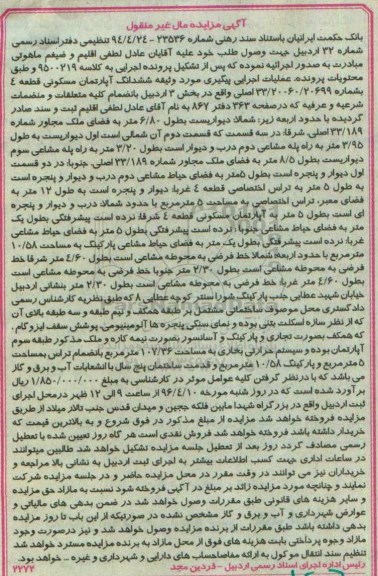 آگهی مزایده مال غیر منقول
بانک حکمت ایرانیان باستناد سند رهنی شماره ۲۳۵۳۶ - ۹۴/۴/۲۴ تنظیمی دفتر اسناد رسمی
شماره ۳۲ اردبیل جهت وصول طلب خود علیه آقایان عادل لطفی اقلیم و ضیغم ماهوتی
مبادرت به صدور اجرائیه نموده که پس از تشکیل پرونده اجرایی به کلاسه ۹۵۰۰۲۱۹ و طبق
محتویات پرونده، عملیات اجرایی پیگیری مورد وثیقه ششدانگ آپارتمان مسکونی قطعه ۴
بشماره ۳۳/۲۰۰۶۰/۲۰۶۹۹ اصلی واقع در بخش ۳ اردبیل بانضمام کلیه متعلقات و منضمات
شرعیه و عرفیه که درصفحه ۳۶۳ دفتر ۸۶۷ به نام آقای عادل لطفی اقلیم ثبت و سند صادر
گردیده با حدود اربعه زیر: شمالا: دیواریست بطول ۶/۸۰ متر به فضای ملک مجاور شماره
۳۳/۱۸۹ اصلی. شرقا: در سه قسمت که قسمت دوم آن شمالی است اول دیواریست به طول
۳/۹۵ متر به راه پله مشاعی دوم درب و دیوار است بطول ۳/۲۰ متر به راه پله مشاعی سوم
دیواریست بطول ۸/۵ متر به فضای ملک مجاور شماره ۳۳/۱۸۹ اصلی. جنوبا: در دو قسمت
اول دیوار و پنجره است بطول ۵متر به فضای حیاط مشاعی دوم درب و دیوار و پنجره است
به طول ۵ متر به تراس اختصاصی قطعه ۴ غربا: دیوار و پنجره است به طول ۱۲ متر به
فضای معبر، تراس اختصاصی به مساحت ۵ مترمربع با حدود شمالا: درب و دیوار و پنجره
ای است بطول ۵ متر به آپارتمان مسکونی قطعه ۴ شرقا: نرده است پیشرفتگی بطول یک
متر به فضای حیاط مشاعی جنوبا: نرده است پیشرفتگی بطول ۵ متر به فضای حیاط مشاعی
غربا: نرده است پیشرفتگی بطول یک متر به فضای حیاط مشاعی پارکینگ به مساحت ۱۰/۵۸
مترمربع با حدود اربعه: شمالا خط فرضی به محوطه مشاعی است بطول ۴/۶۰ متر شرقا خط
فرضی به محوطه مشاعی است بطول ۲/۳۰ متر جنوبا خط فرضی به محوطه مشاعی است
بطول ۴/۶۰ متر غربا: خط فرضی به محوطه مشاعی است بطول ۲/۳۰ متر بنشانی اردبیل
خیابان شهید عطایی جنب پارکینگ شورا سنتر کوچه عطایی ۸ که طبق نظریه کارشناس رسمی
دادگستری محل موصوف ساختمانی مشتمل بر طبقه همکف و نیم طبقه و سه طبقه بالای آن
که از نظر سازه اسکلت بتنی بوده و نمای سنگی پنجره ها آلومینیومی، پوشش سقف ایزوگام.
که همکف بصورت تجاری و پارکینگ و آسانسور بصورت نیمه کاره و ملک مذکور طبقه سوم
آپارتمان بوده و سیستم حرارتی بخاری به مساحت ۱۰۷/۳۶ مترمربع بانضمام تراس بمساحت
۵ مترمربع و پارکینگ ۱۰/۵۸ مترمربع و قدمت ساختمان پنج سال با انشعابات آب و برق و گاز
می باشد که با درنظر گرفتن کلیه عوامل موثر در کارشناسی به مبلغ ۱/۸۵۰/۰۰۰/۰۰۰ ریال
برآورد شده است که در روز شنبه مورخه ۹۶/۴/۱۰ از ساعت ۹ الی ۱۲ ظهر درمحل اجرای
ثبت اردبیل واقع در بزرگراه شهدا مابین فلکه ججین و میدان قدس جنب تالار میلاد از طریق
مزایده فروخته خواهد شد مزایده از مبلغ مذکور در فوق شروع و به بالاترین قیمت که
خریدار داشته باشد فروخته خواهد شد فروش نقدی است هر گاه روز تعیین شده با تعطیل
رسمی مصادف گردد روز بعد از تعطیل جلسه مزایده تشکیل خواهد شد طالبین میتوانند
در ساعات اداری جهت کسب اطلاعات بیشتر به اجرای ثبت اردبیل به نشانی بالا مراجعه و
خریداران نیز می توانند در وقت مقرر در محل مزایده حاضر و در جلسه مزایده شرکت
نمایند و چنانچه مورد مزایده زائد بر مبلغ در آگهی فروخته شود نسبت به مازاد حق مزایده
و سایر هزینه های قانونی طبق مقررات وصول خواهد شد در ضمن بدهی های مالیاتی و
عوارض شهرداری و آب و برق و گاز مشخص نشده در صورتیکه از این باب تا روز مزایده
بدهی داشته باشد طبق مقررات از برنده مزایده وصول خواهد شد و نیز درصورت وجود
مازاد وجوه پرداختی بابت هزینه های فوق از محل مازاد به برنده مزایده مسترد خواهد شد
تنظیم سند انتقال موکول به ارائه مفاصاحساب های دارایی و شهرداری و غیره ... خواهد بود.
رئیس اداره اجرای اسناد رسمی اردبیل - فردین مجد ۲۲۷۲